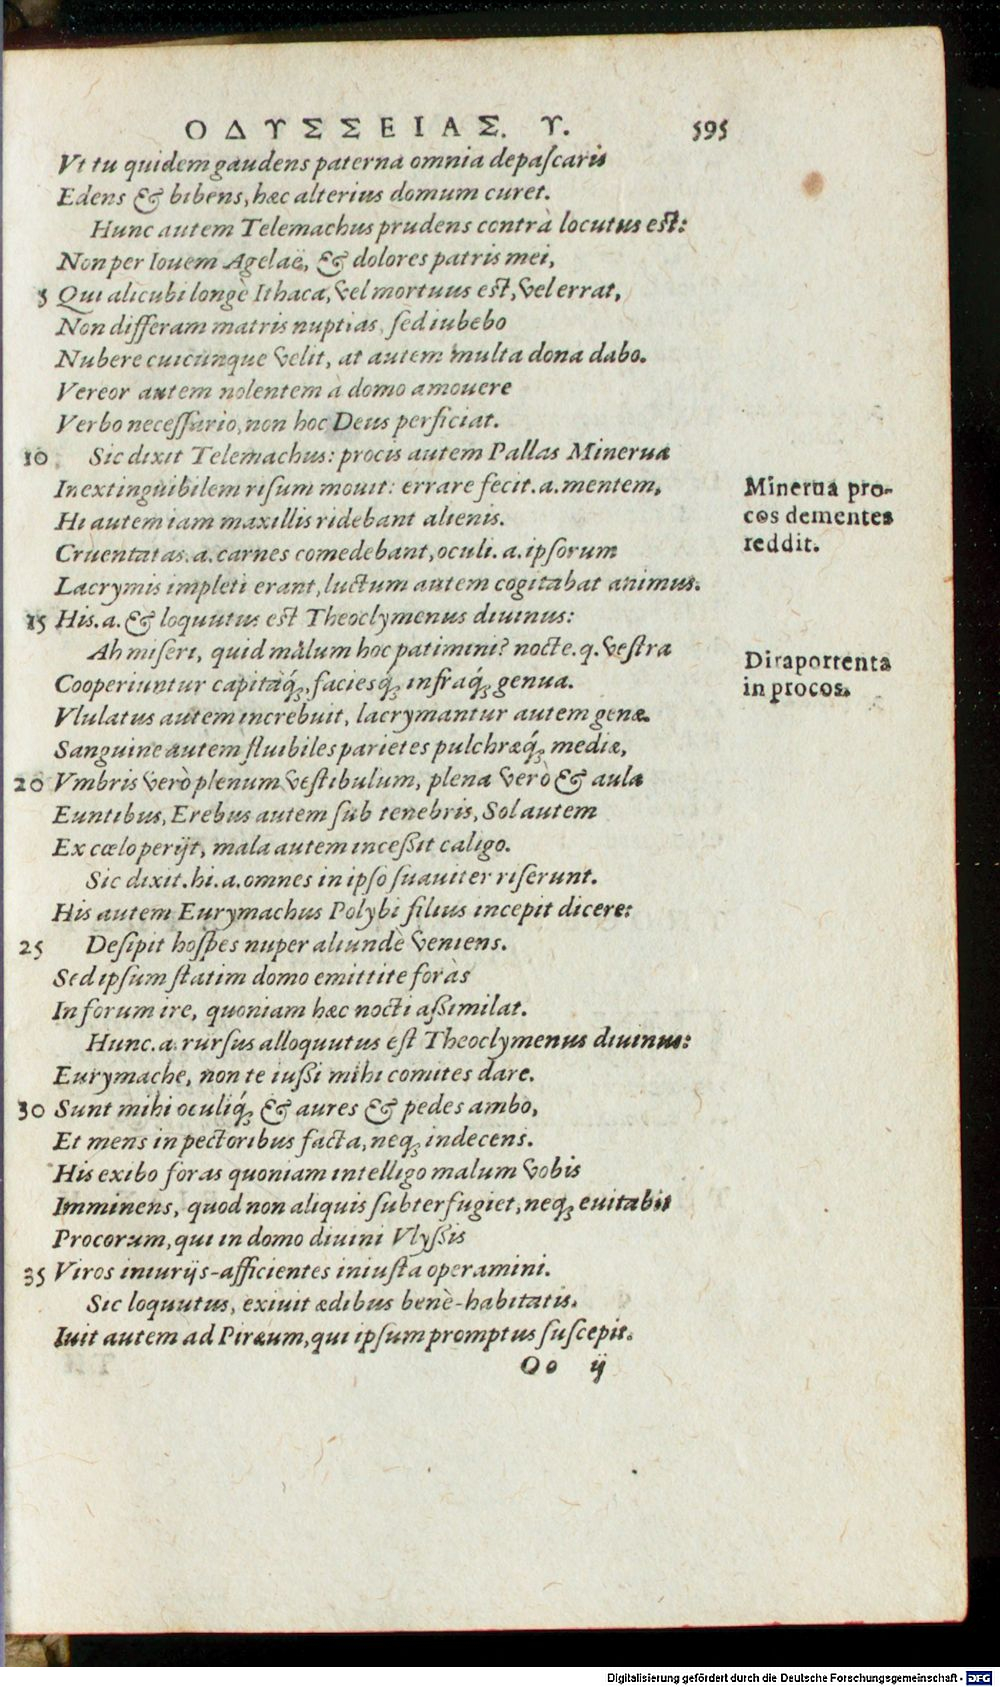 ΟΔΥΣΣΕΙΑΣ. Υ. 595
Vt tu quidem gaudens paterna omnia depaſcaris
Edens & bibens, hæc alterius domum curet.
Hunc autem Telemachus prudens contrà locutus est:
Non per Iouem Agelaë, & dolores patris mei,
5 Qui alicubi longè Ithaca, vel mortuus est, vel errat,
Non differam matris nuptias, ſed iubebo
Nubere cuicunque velit, at autem multa dona dabo.
Vereor autem nolentem à domo amouere
Verbo neceſſario, non hoc Deus perficiat.
10 Sic dixit Telemachus: procis autem Pallas Minerua
Inextinguibilem riſum mouit: errare fecit. a. mentem,
Hi autem iam maxillis ridebant alienis.
Cruentatas. a. carnes comedebant, oculi. a. ipſorum
Lacrymis impleti erant, luctum autem cogitabat animus.
15 His. a. & loquutus est Theoclymenus diuinus:
Ah miſeri, quid malum hoc patimini? nocte. q. veſtra
Cooperiuntur capitáq;, facieſq; infráq; genua.
Vlulatus autem increbuit, lacrymantur autem genæ.
Sanguine autem fluibiles parietes pulchræq́; mediæ,
20 Vmbris verò plenum veſtibulum, plena verò & aula
Euntibus, Erebus autem ſub tenebris, Sol autem
Ex cœlo perijt, mala autem inceßit caligo.
Sic dixit. hi. a. omnes in ipſo ſuauiter riſerunt.
His autem Eurymachus Polybi filius incepit dicere:
25 Deſipit hoſpes nuper aliundè veniens.
Sed ipſum ſtatim domo emittite foràs
In forum ire, quoniam hæc nocti aßimilat.
Hunc. a. rurſus alloquutus eſt Theoclymenus diuinus:
Eurymache, non te iußi mihi comites dare.
30 Sunt mihi oculiq́; & aures & pedes ambo,
Et mens in pectoribus facta, neq; indecens.
His exibo foras quoniam intelligo malum vobis
Imminens, quod non aliquis ſubterfugiet, neq; euitabit
Procorum, qui in domo diuini Vlyßis
35 Viros iniurijs-afficientes iniuſta operamini.
Sic loquutus, exiuit ædibus benè-habitatis.
Iuit autem ad Piræum, qui ipſum promptus ſuſcepit.
Oo ij
Minerua pro-
cos dementes
reddit.
Dira portenta
in procos.
Digitalisierung gefördert durch die Deutsche Forschungsgemeinschaft - DFG